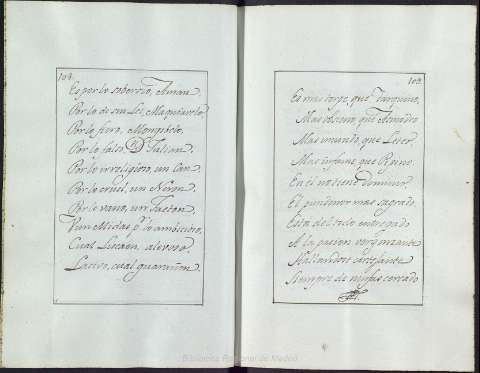 108.
Es por lo soberbio, Aman.
Por lo de sin Lei, Maquiavelo
Por lo fiero, Mongibelo.
Por lo falso, Dn. Julian.
Por lo irreligioso, un Can.
Por lo cruel, un Neron.
Por lo vano, un Faeton.
Y un Midas pr. lo ambicioso.
Cual Licaon, alevoso.
Lacivo, cual guarañon.
109.
Es mas torpe, que Tarquino,
Mas obsceno, que
Mas inmundo, que
Mas infame, que
En él no tiene dominio
El pundonor mas sagrado.
Está del todo entregado
A la pasion vergonzante
Hallandose este
Siempre de ninfas cercado
Biblioteca Regional de Madrid